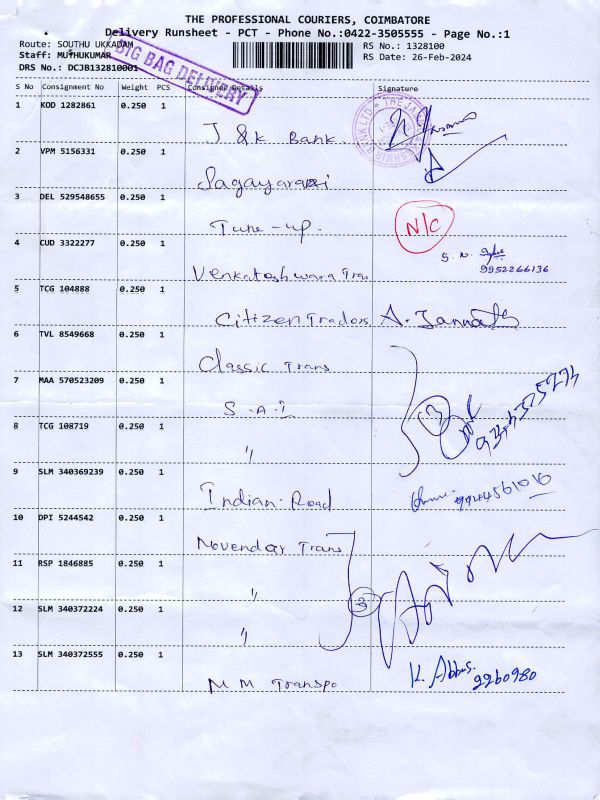 THE PROFESSIONAL COURIERS, COIMBATORE
Delivery Runsheet - PCT - Phone No.:0422-3505555 - Page No.:1
Route: SOUTHU UKKADAM
RS No.: 1328100
Staff: MUTHUKUMAR
RS Date: 26-Feb-2024
DRS No.: DCJB132810001
BIG BAG DELIVERY
S No Consignment No Weight PCS Consigned Details Signature
1 KOD 1282861 0.250 1 J & K Bank.
2 VPM 5156331 0.250 1 Sagayarani
3 DEL 529548655 0.250 1 Tune-up. N/C
4 CUD 3322277 0.250 1 Venkatoshwara Tran S. N. 9952266136
5 TCG 104888 0.250 1 Citizen Traders A. Jannath
6 TVL 8549668 0.250 1 Classic Trans
7 MAA 570523209 0.250 1 S.A.I
8 TCG 108719 0.250 1 "
9 SLM 340369239 0.250 1 Indian Road
10 DPI 5244542 0.250 1 Novendar Trans
11 RSP 1846885 0.250 1 "
12 SLM 340372224 0.250 1 " 3
13 SLM 340372555 0.250 1 M M Transpo K. Abbas. 9960980